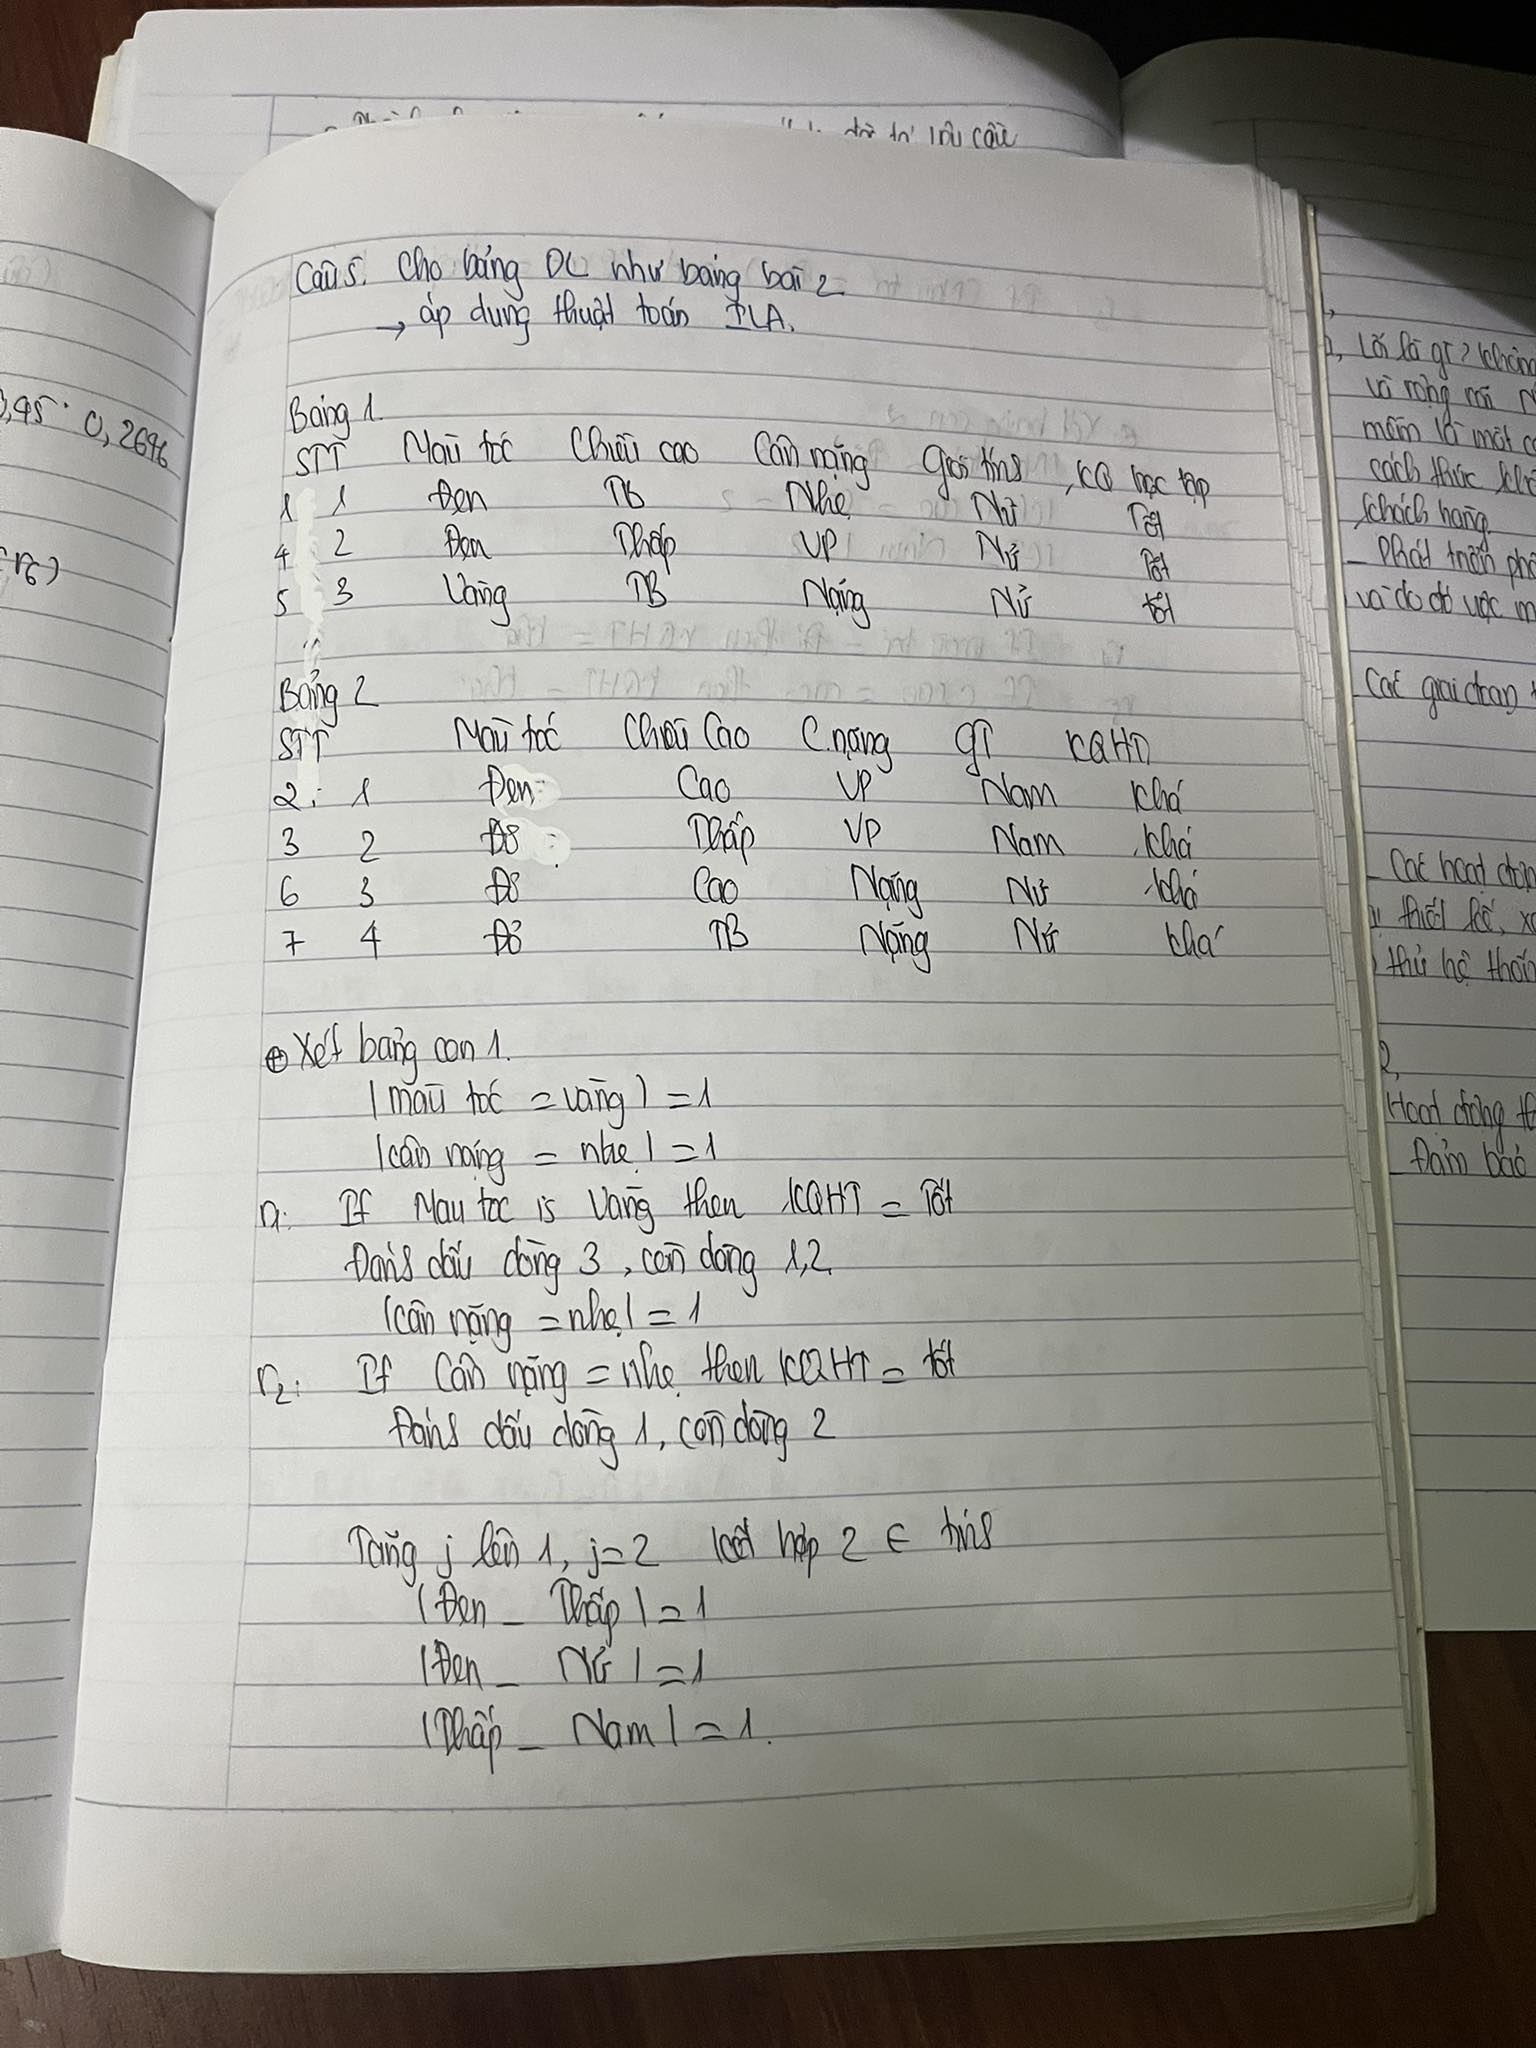 Câu 5. Cho bảng DL như bảng bài 2
→ áp dụng thuật toán ILA.
Bảng 1.
STT Màu tóc Chiều cao Cân nặng Giới tính KQ học tập
1 1 Đen TB Nhẹ Nữ Tốt
4 2 Đen Thấp VP Nữ Tốt
5 3 Vàng TB Nặng Nữ tốt
Bảng 2
STT Màu tóc Chiều Cao C.nặng GT KQHT
2 1 Đen Cao VP Nam Khá
3 2 Đỏ Thấp VP Nam Khá
6 3 Đỏ Cao Nặng Nữ khá
7 4 Đỏ TB Nặng Nữ khá
⊕ Xét bảng con 1.
|màu tóc = vàng| = 1
|cân nặng = nhẹ| = 1
r1: If Màu tóc is Vàng then KQHT = Tốt
Đánh dấu dòng 3, còn dòng 1,2
|cân nặng = nhẹ| = 1
r2: If Cân nặng = nhẹ then KQHT = tốt
Đánh dấu dòng 1, còn dòng 2
Tăng j lên 1, j=2 kết hợp 2 € tính
|Đen _ Thấp| = 1
|Đen _ Nữ| = 1
|Thấp _ Nam| = 1.
0,2696
Lõi là gì? không
và rộng mà
mềm là một
cách thức
khách hàng
_ Phát triển
và do đó việc
Các giai đoạn
_ Các hoạt động
thiết kế,
thử hệ thống
2,
Hoạt động
_ Đảm bảo